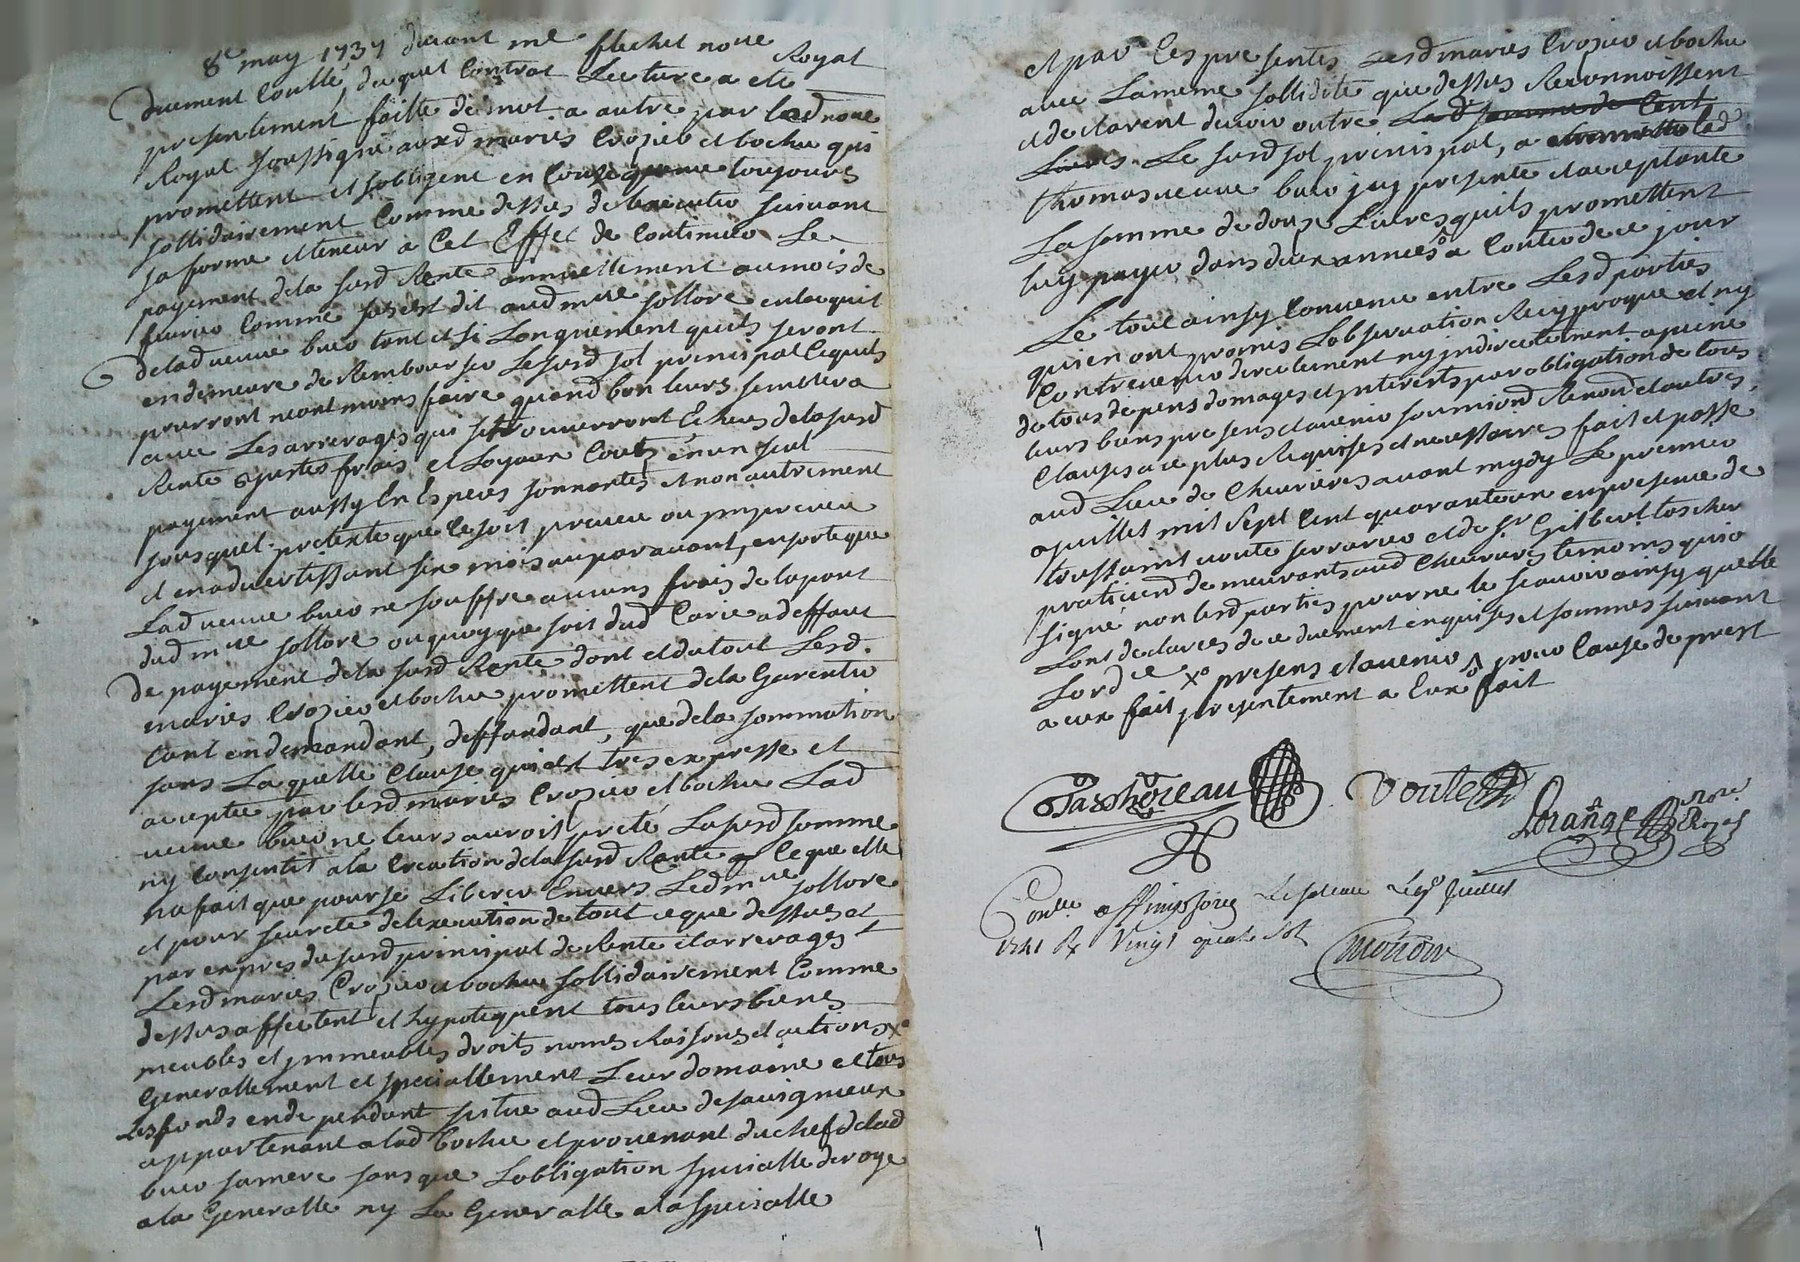 8e may 1737 devant me flechet nore Royal
duement Coullé, duquel Contrat Lecture a ete
presentement faitte de mot a autre par led nore
Royal soussigné auxd mariés Crozier et bochu qui
promettent et sobligent en Consequence toujours
sollidairement Comme dessus de lexecuter suivant
sa forme et teneur a Cet Effet de Continuer Le
payement de la susd Rente annuellement au mois de
fevrier Comme sus est dit aud mre sollore en lacquit
de lad veuve buer tant et si Longuement quils seront
en demeure de Rembourser Le susd sol principal lequels
pourront neantmoins faire quand bon leurs semblera
avec Les arrerages qui se trouverront Echeus de la susd
Rente justes frais et Loyaux Couts en un seul
payement aussy En Especes sonnantes et non autrement
sous quel pretexte que Ce soit preveu ou jmpreveu
et en advertissant six mois auparavant, en sorte que
Lad veuve buer ne souffre aucuns frais de la part
dud mre sollore ou quoy que soit dud Curé a deffaut
de payement de la susd Rente dont et du tout Lesd.
mariés Crozier et bochu promettent de la Garentir
tant en demandant, deffandant, que de la sommation
sans Laquelle Clause qui est tres expresse et
acceptée par lesd mariés Crozier et bochu Lad
veuve buer ne leurs auroit preté La susd somme
ny Consenti a la Creation de la susd Rente Ce que elle
na fait que pour se Liberer Envers Led mre sollore
et pour seureté de lexecution de tout ce que dessus et
par exprés du susd principal de Rente et arrerages
Lesd mariés Crozier et bochu sollidairement Comme
dessus affectent et hypotequent tous leurs biens
meubles et jmmeubles droits noms Raisons et actions xo
Generallement et speciallement Leur domaine et tous
Les fonds en dependant situé aud Lieu de sauigneux
appartenant a lad bochu et provenant du chef de lad
buer sa mere sans que Lobligation specialle deroge
a la Generalle ny La Generalle a la specialle
et par Ces presentes Lesd mariés Crozier et bochu
avec La meme sollidité que dessus Reconnoissent
et declarent devoir outre La d somme de Cent
Livres Le susd sol principal, a lad
thomas veuve buer jcy presente et acceptante
La somme de douze Livres quils promettent
luy payer dans deux années a Conter de ce jour
Le tout ainsy Convenu entre Lesd parties
qui en ont promis Lobservation Reciproque et ny
Contrevenir directement ny jndirectement a peine
de tous depens domages et jnterests par obligation de tous
leurs biens presens et avenir soumions Renons et autres
Clauses a ce plus Requises et necessaires fait et passé
aud Lieu de Chevrieres avant mydy Le premier
juillet mil sept Cent quarante un en presence de
toussaint voute serrurier et de sr Gilbert tascher
praticien demeurants aud Chevrieres temoins qui o
signé non lesd parties pour ne le sçavoir ainsy quelle
Lont declarées de ce duement enquises et sommés suivant
Lord ce xo presens et avenir pour Cause de prest
a eux fait presentement a Eux fait
Voute
Lorange nore Royal
1741 Rx Vingt quatre sols